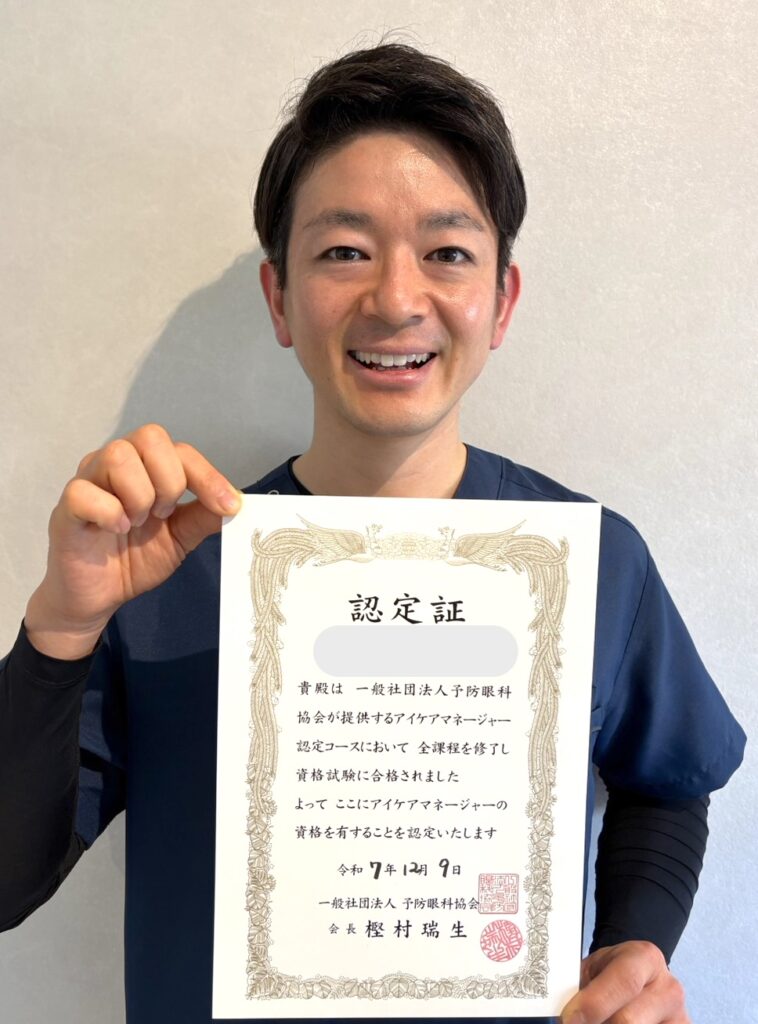 認定証
貴殿は 一般社団法人予防眼科
協会が提供するアイケアマネージャー
認定コースにおいて 全課程を修了し
資格試験に合格されました
よって ここにアイケアマネージャーの
資格を有することを認定いたします
令和7年12月9日
一般社団法人 予防眼科協会
会長 樫村瑞生